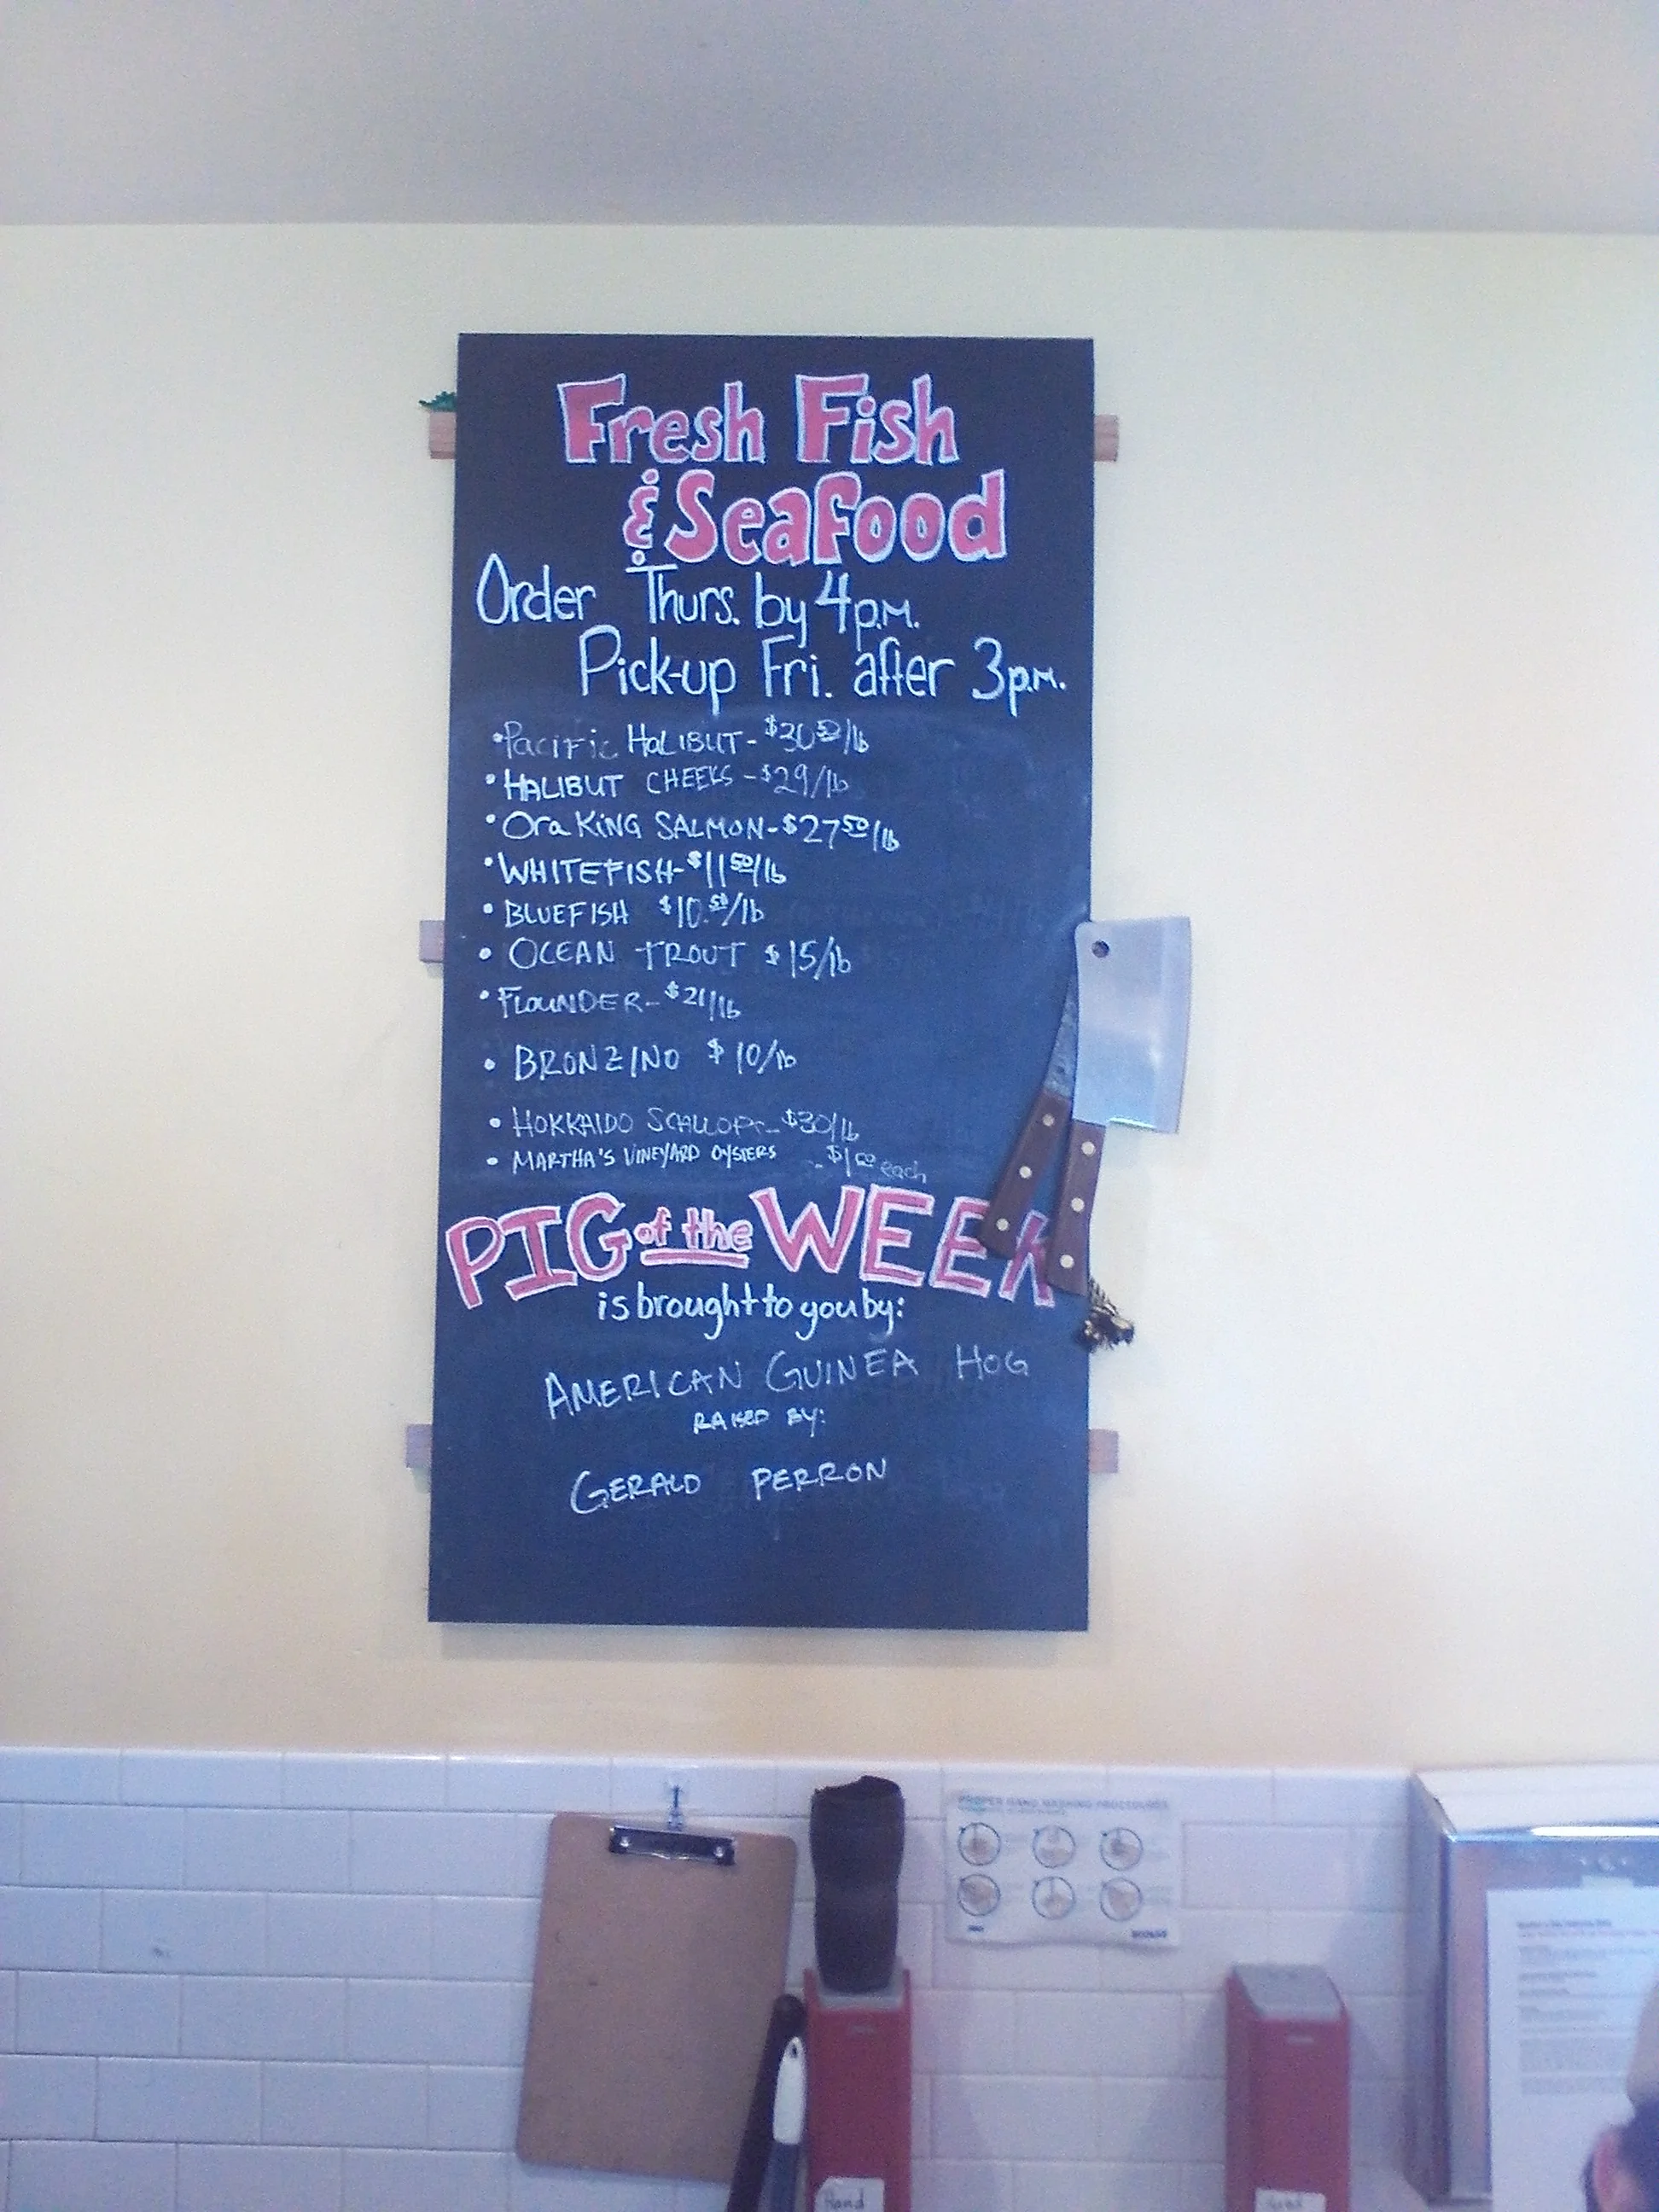 Fresh Fish
& Seafood
Order Thurs. by 4p.m.
Pick-up Fri. after 3p.m.
•Pacific HALIBUT- $30 50/lb
•HALIBUT CHEEKS -$29/lb
•Ora KiNG SALMON-$27 50/lb
•WHITEFISH-$11 50/lb
•BLUEFISH $10.50/lb
• OCEAN TROUT $15/lb
•FLOUNDER-$21/lb
• BRONZINO $10/lb
• HOKKAIDO SCALLOPS-$30/lb
• MARTHA'S VINEYARD OYSTERS - each
PIG of the WEEK
is brought to you by:
AMERICAN GUINEA HOG
RAISED BY:
GERALD PERRON
PROPER HAND WASHING PROCEDURES
Hand